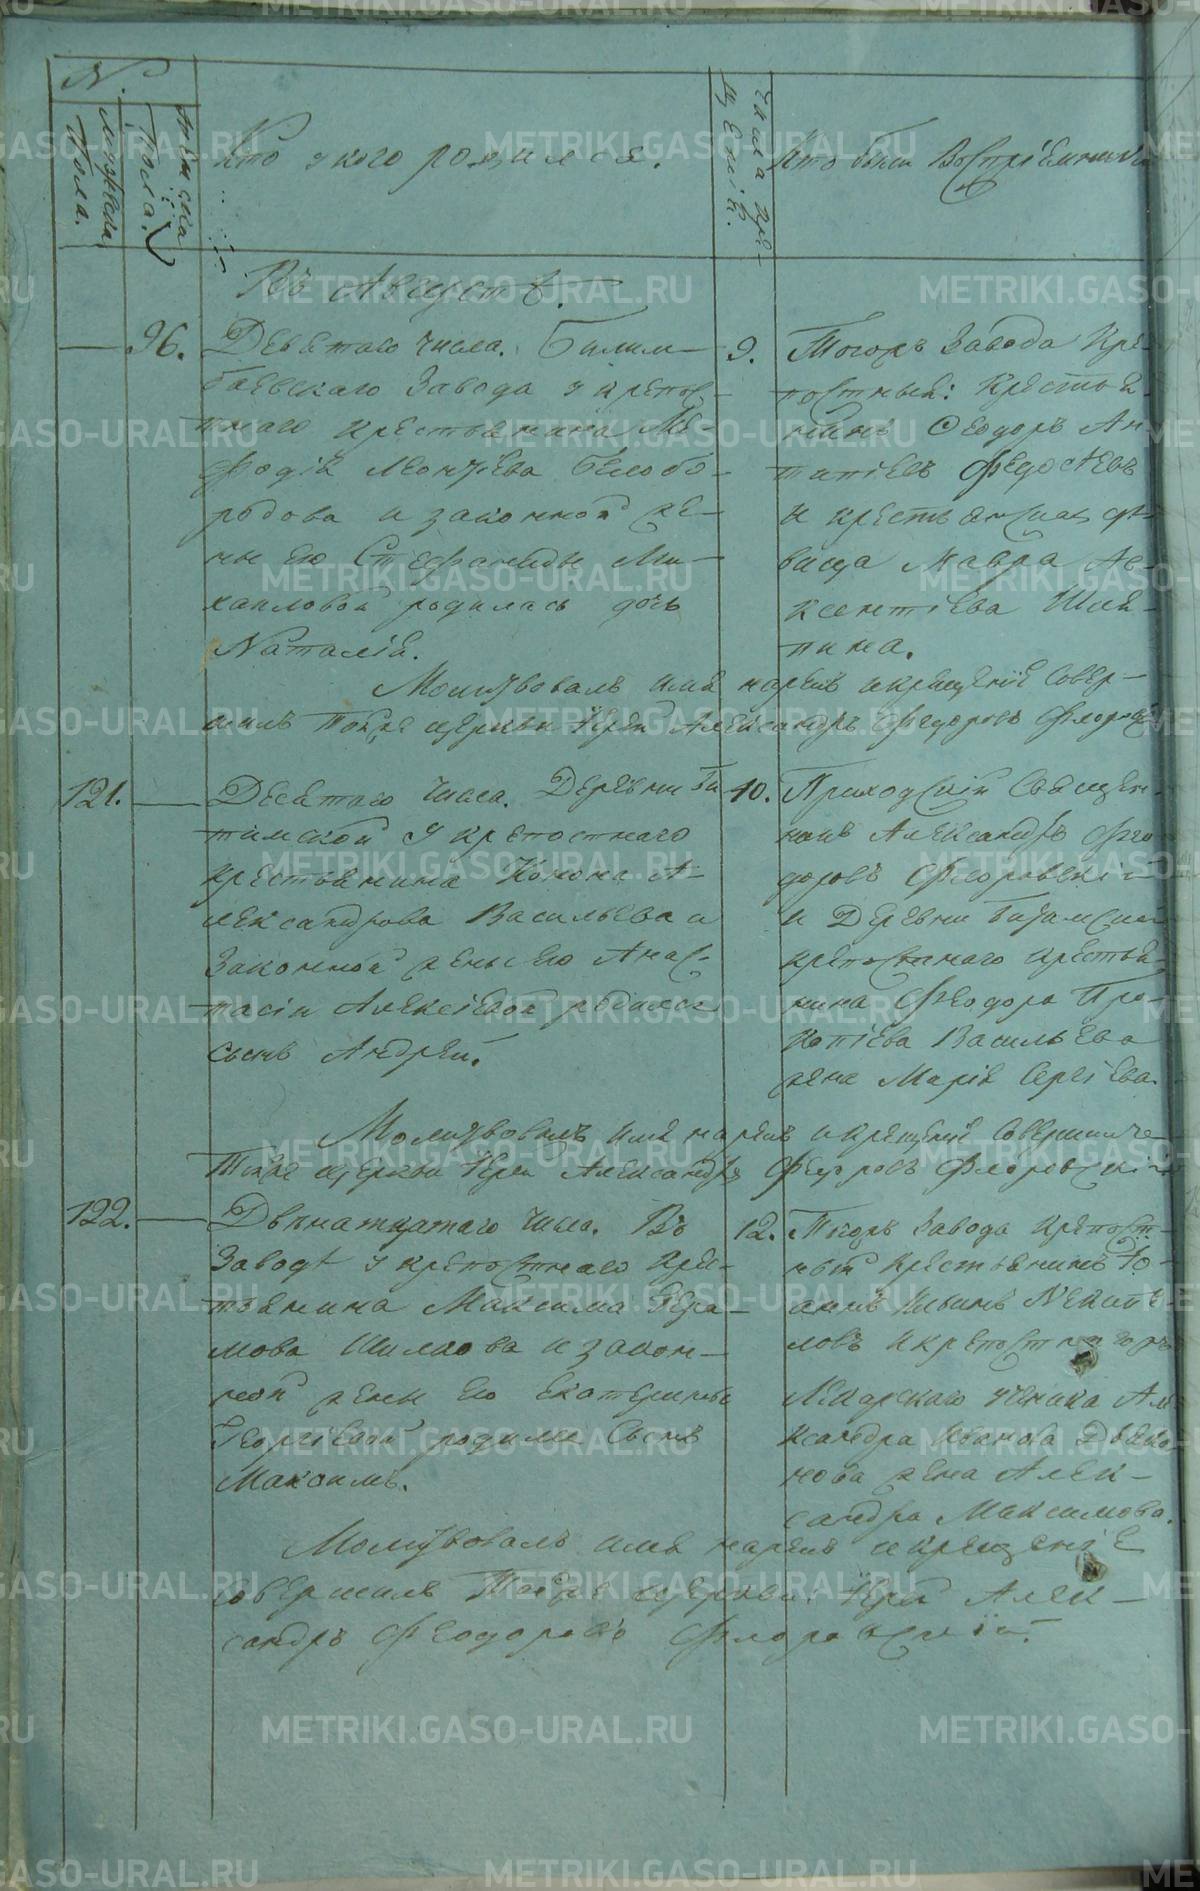 N.
Мужеска пола.
Женска пола.
Кто у кого родился.
Числа креще-
нія.
Кто были Воспріемники
Въ Августѣ.
— 96. Девятаго числа. Билим-
баевскаго Завода у крепос-
тнаго крестьянина Ме-
фодія Леонтіева Белобо-
родова и законной же-
ны ею Стефаниды Ми-
хаиловой родилась дочь
Наталія.
9. Тогожъ Завода Кре-
постный: Крестья-
нинъ Феодоръ Ан-
типіевъ Федосѣевъ
и крестьянская дѣ-
вица Мавра Ав-
ксентіева Шля-
пина.
Молитвовалъ имя нарекъ и крещеніе совер-
шилъ тойже церкви Іерей Александръ Феодоровъ Флоровск
121. — Десятаго числа. Деревни Би
тимской у крепостнаго
крестьянина Конона А-
лександрова Васильева и
законной жены ею Анас-
тасіи Алексіевой родился
сынъ Андрей.
10. Приходскій Священ-
никъ Александръ Фео-
доровъ Флоровскій
и Деревни Битимской
крепостнаго крестья-
нина Феодора Про-
копіева Васильева
жена Марія Сергіева.
Молитвовалъ имя нарекъ и крещеніе совершилъ
Тойже церкви Іерей Александръ Феодоровъ Флоровскій
122. — Двѣнатцатаго числа. Въ
Заводѣ у крепостнаго Крес-
тьянина Максима
мова Шилкова и закон-
ной жены ею Екатерины
Георгіевой родился Сынъ
Максимъ.
12. Тогожъ Завода крепост-
ный Крестьянинъ Іо-
аннъ Ильинъ
ловъ и крепостнаго
Лекарскаго ученика Але
ксандра Иванова Дьяко-
нова жена Алек-
сандра Максимова.
Молитвовалъ имя нарекъ и крещеніе
совершилъ Тойже церкви: Іерей Алек-
сандръ Феодоровъ Флоровскій.
METRIKI.GASO-URAL.RU